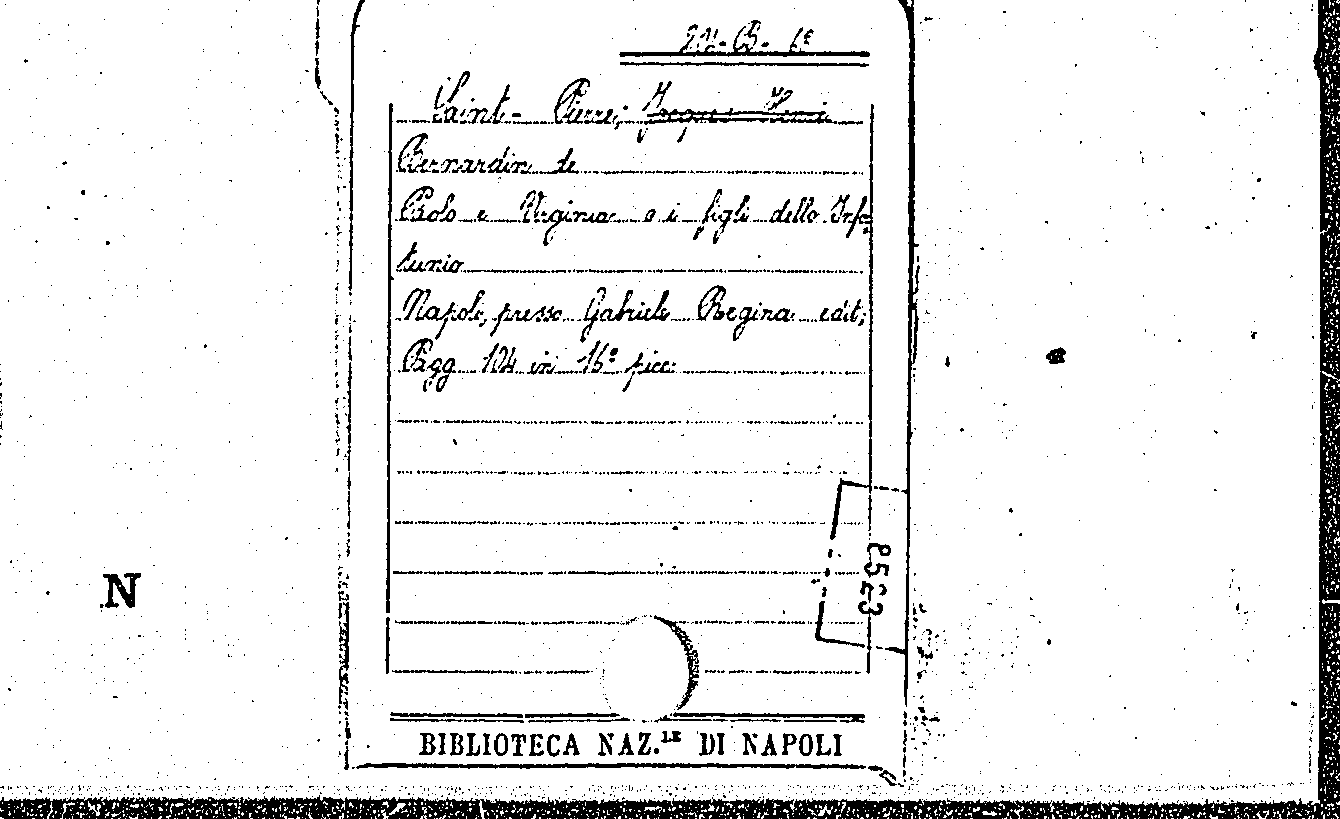 Saint-Pierre, Jacques Henri
Bernardin de
Paolo e Virginia o i figli dello Infor
tunio
Napoli, presso Gabriele Regina edit;
Pagg 104 in 16º picc.
N
BIBLIOTECA NAZ.LE DI NAPOLI